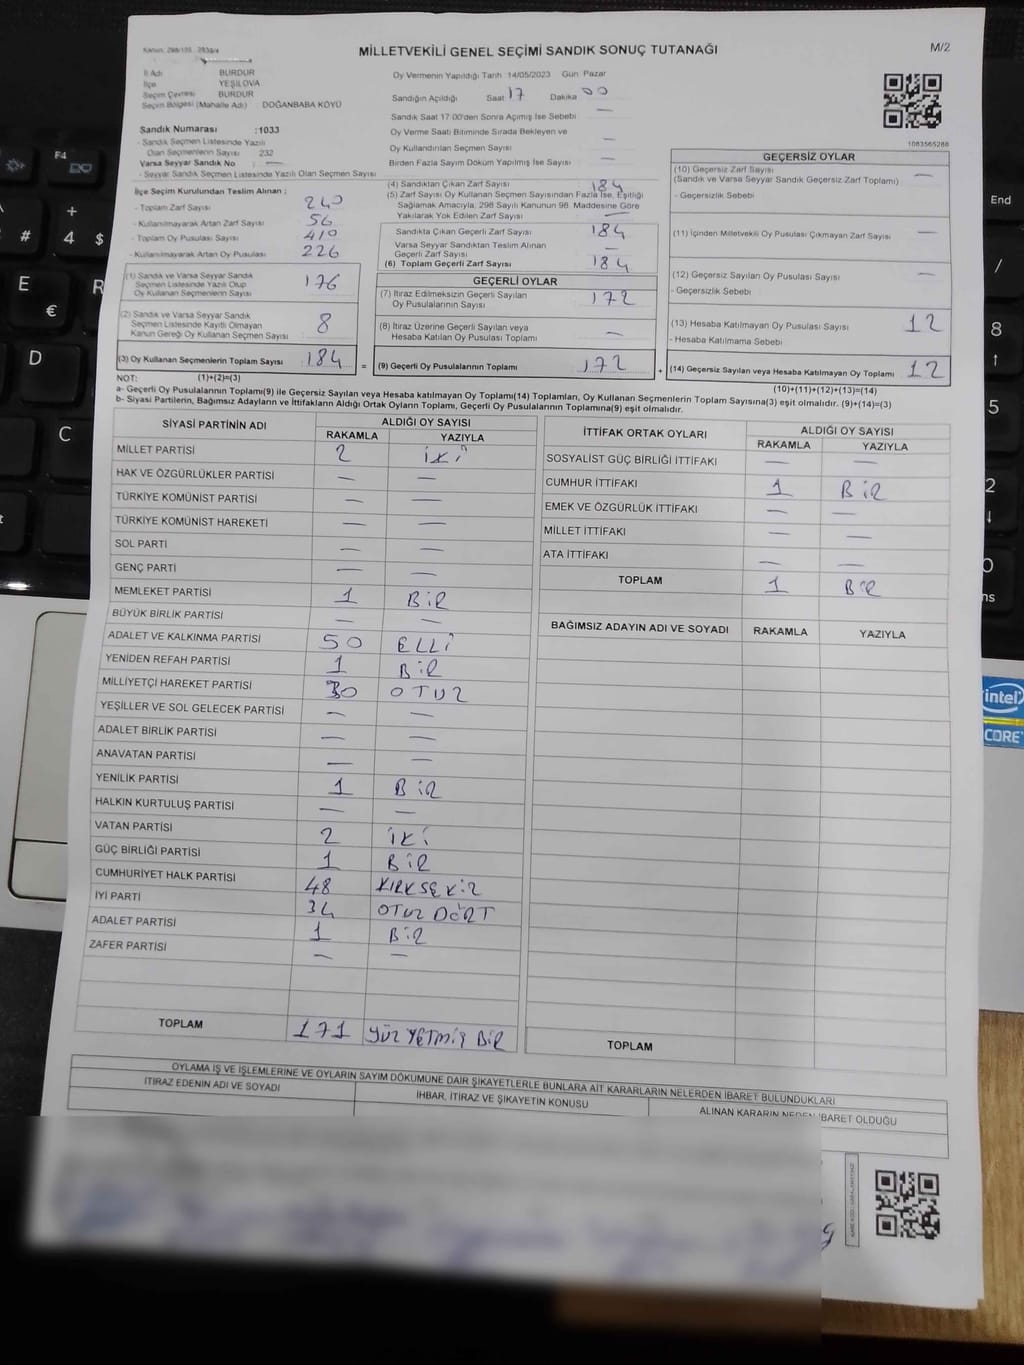 MİLLETVEKİLİ GENEL SEÇİMİ SANDIK SONUÇ TUTANAĞI
M/2
İl Adı BURDUR
İlçe YEŞİLOVA
Seçim Çevresi BURDUR
Seçim Bölgesi (Mahalle Adı) DOĞANBABA KÖYÜ
Sandık Numarası :1033
- Sandık Seçmen Listesinde Yazılı
Olan Seçmenlerin Sayısı 232
Varsa Seyyar Sandık No : —
- Seyyar Sandık Seçmen Listesinde Yazılı Olan Seçmen Sayısı
İlçe Seçim Kurulundan Teslim Alınan ;
- Toplam Zarf Sayısı 240
- Kullanılmayarak Artan Zarf Sayısı 56
- Toplam Oy Pusulası Sayısı 410
- Kullanılmayarak Artan Oy Pusulası 226
(1) Sandık ve Varsa Seyyar Sandık
Seçmen Listesinde Yazılı Olup
Oy Kullanan Seçmenlerin Sayısı 176
(2) Sandık ve Varsa Seyyar Sandık
Seçmen Listesinde Kayıtlı Olmayan
Kanun Gereği Oy Kullanan Seçmen Sayısı 8
(3) Oy Kullanan Seçmenlerin Toplam Sayısı 184
Oy Vermenin Yapıldığı Tarih 14/05/2023 Gün Pazar
Sandığın Açıldığı Saat 17 Dakika 00
Sandık Saat 17.00'den Sonra Açımış İse Sebebi —
Oy Verme Saati Bitiminde Sırada Bekleyen ve
Oy Kullandırılan Seçmen Sayısı —
Birden Fazla Sayım Döküm Yapılmış İse Sayısı —
(4) Sandıktan Çıkan Zarf Sayısı 184
(5) Zarf Sayısı Oy Kullanan Seçmen Sayısından Fazla İse, Eşitliği
Sağlamak Amacıyla, 298 Sayılı Kanunun 98. Maddesine Göre
Yakılarak Yok Edilen Zarf Sayısı —
Sandıkta Çıkan Geçerli Zarf Sayısı 184
Varsa Seyyar Sandıktan Teslim Alınan
Geçerli Zarf Sayısı —
(6) Toplam Geçerli Zarf Sayısı 184
GEÇERLİ OYLAR
(7) İtiraz Edilmeksizin Geçerli Sayılan
Oy Pusulalarının Sayısı 172
(8) İtiraz Üzerine Geçerli Sayılan veya
Hesaba Katılan Oy Pusulası Toplamı —
= (9) Geçerli Oy Pusulalarının Toplamı 172
1083565288
GEÇERSİZ OYLAR
(10) Geçersiz Zarf Sayısı
(Sandık ve Varsa Seyyar Sandık Geçersiz Zarf Toplamı) —
- Geçersizlik Sebebi
(11) İçinden Milletvekili Oy Pusulası Çıkmayan Zarf Sayısı —
(12) Geçersiz Sayılan Oy Pusulası Sayısı —
- Geçersizlik Sebebi
(13) Hesaba Katılmayan Oy Pusulası Sayısı 12
- Hesaba Katılmama Sebebi
+ (14) Geçersiz Sayılan veya Hesaba Katılmayan Oy Toplamı 12
NOT: (1)+(2)=(3) (10)+(11)+(12)+(13)=(14)
a- Geçerli Oy Pusulalarının Toplamı(9) ile Geçersiz Sayılan veya Hesaba katılmayan Oy Toplamı(14) Toplamları, Oy Kullanan Seçmenlerin Toplam Sayısına(3) eşit olmalıdır. (9)+(14)=(3)
b- Siyasi Partilerin, Bağımsız Adayların ve İttifakların Aldığı Ortak Oyların Toplamı, Geçerli Oy Pusulalarının Toplamına(9) eşit olmalıdır.
SİYASİ PARTİNİN ADI ALDIĞI OY SAYISI
RAKAMLA YAZIYLA
MİLLET PARTİSİ 2 İKİ
HAK VE ÖZGÜRLÜKLER PARTİSİ — —
TÜRKİYE KOMÜNİST PARTİSİ — —
TÜRKİYE KOMÜNİST HAREKETİ — —
SOL PARTİ — —
GENÇ PARTİ — —
MEMLEKET PARTİSİ 1 BİR
BÜYÜK BİRLİK PARTİSİ — —
ADALET VE KALKINMA PARTİSİ 50 ELLİ
YENİDEN REFAH PARTİSİ 1 BİR
MİLLİYETÇİ HAREKET PARTİSİ 30 OTUZ
YEŞİLLER VE SOL GELECEK PARTİSİ — —
ADALET BİRLİK PARTİSİ — —
ANAVATAN PARTİSİ — —
YENİLİK PARTİSİ 1 BİR
HALKIN KURTULUŞ PARTİSİ — —
VATAN PARTİSİ 2 İKİ
GÜÇ BİRLİĞİ PARTİSİ 1 BİR
CUMHURİYET HALK PARTİSİ 48 KIRKSEKİZ
İYİ PARTİ 34 OTUZ DÖRT
ADALET PARTİSİ 1 BİR
ZAFER PARTİSİ — —
TOPLAM 171 YÜZ YETMİŞ BİR
İTTİFAK ORTAK OYLARI ALDIĞI OY SAYISI
RAKAMLA YAZIYLA
SOSYALİST GÜÇ BİRLİĞİ İTTİFAKI — —
CUMHUR İTTİFAKI 1 BİR
EMEK VE ÖZGÜRLÜK İTTİFAKI — —
MİLLET İTTİFAKI — —
ATA İTTİFAKI — —
TOPLAM 1 BİR
BAĞIMSIZ ADAYIN ADI VE SOYADI RAKAMLA YAZIYLA
TOPLAM
OYLAMA İŞ VE İŞLEMLERİNE VE OYLARIN SAYIM DÖKÜMÜNE DAİR ŞİKAYETLERLE BUNLARA AİT KARARLARIN NELERDEN İBARET BULUNDUKLARI
İTİRAZ EDENİN ADI VE SOYADI İHBAR, İTİRAZ VE ŞİKAYETİN KONUSU ALINAN KARARIN NEDEN İBARET OLDUĞU
F4
End
E
R
D
C
€
#
4
$
8
5
2
intel
CORE